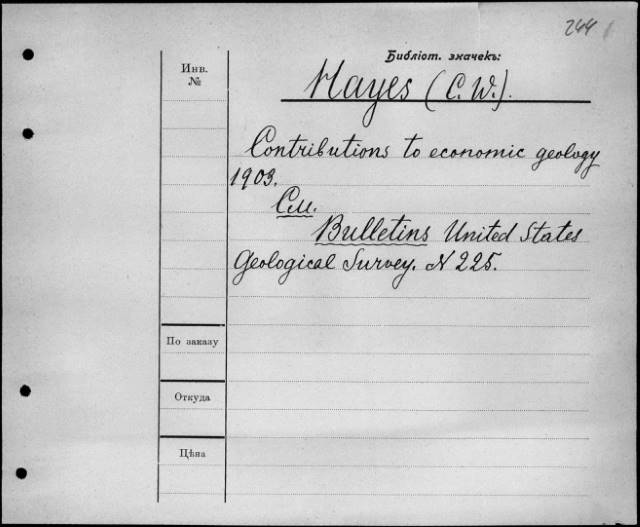 244
Библіот. значекъ:
Инв.
№
Hayes (C. W.).
Contributions to economic geology
1903.
См.
Bulletins United States
Geological Survey. N 225.
По заказу
Откуда
Цѣна